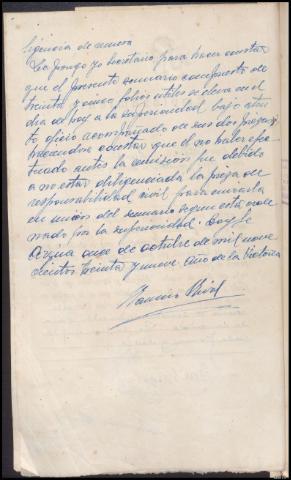 ligencia de remesa
La pongo yo Secretario para hacer constar
que el presente sumario compuesto de
treinta y unco folios utiles se eleva en el
dia de hoy a la superioridad bajo aten
to oficio acompañado de sus dos piezas y
haciendose constar que el no haber efec
tuado antes la remision fue debido
a no estar diligenciada la pieza de
responsabilidad civil para enviarla
en union del sumario segun esta orde
nado por la superioridad. Doy fe
once de octubre de mil nove
cientos treinta y nueve Año de la Victoria